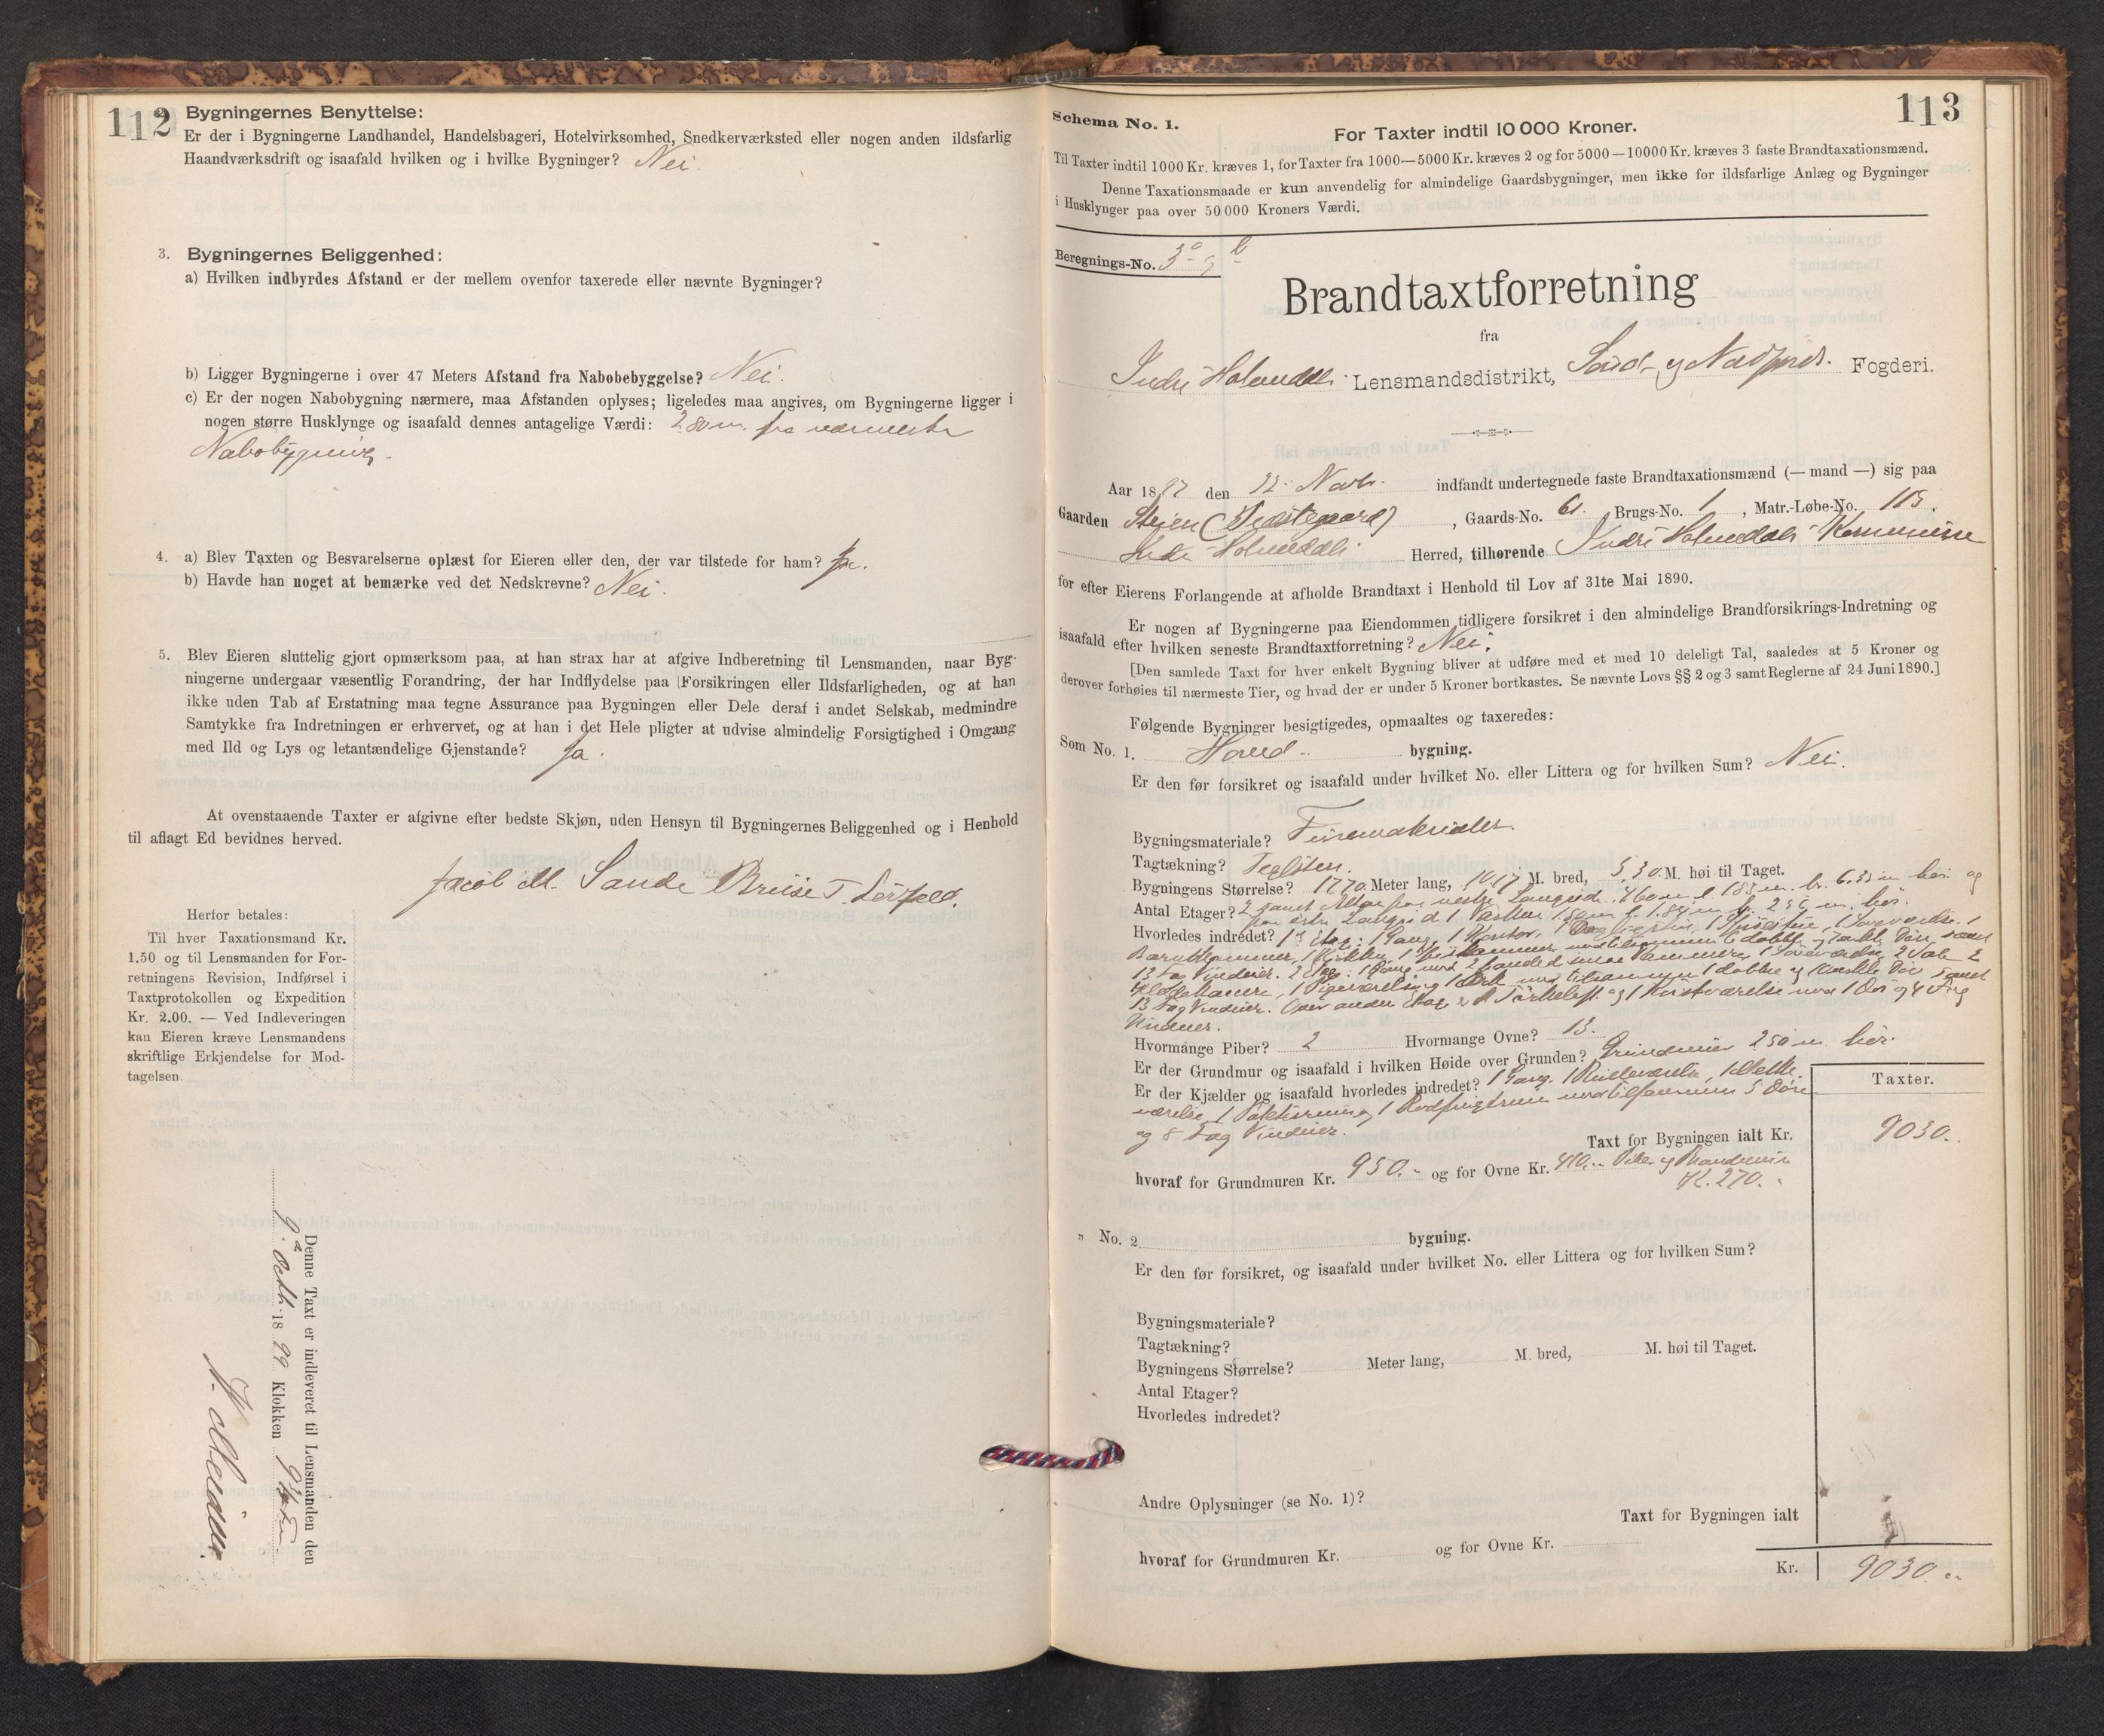 112
Bygningernes Benyttelse:
Er der i Bygningerne Landhandel, Handelsbageri, Hotelvirksomhed, Snedkerværksted eller nogen anden ildsfarlig
Haandværksdrift og isaafald hvilken og i hvilke Bygninger? Nei.
3. Bygningernes Beliggenhed:
a) Hvilken indbyrdes Afstand er der mellem ovenfor taxerede eller nævnte Bygninger?
b) Ligger Bygningerne i over 47 Meters Afstand fra Nabobebyggelse? Nei.
c) Er der nogen Nabobygning nærmere, maa Afstanden oplyses; ligeledes maa angives, om Bygningerne ligger i
nogen større Husklynge og isaafald dennes antagelige Værdi: fra nærmeste
Nabobygning.
4. a) Blev Taxten og Besvarelserne oplæst for Eieren eller den, der var tilstede for ham? Ja.
b) Havde han noget at bemærke ved det Nedskrevne? Nei.
5. Blev Eieren sluttelig gjort opmærksom paa, at han strax har at afgive Indberetning til Lensmanden, naar Byg-
ningerne undergaar væsentlig Forandring, der har Indflydelse paa Forsikringen eller Ildsfarligheden, og at han
ikke uden Tab af Erstatning maa tegne Assurance paa Bygningen eller Dele deraf i andet Selskab, medmindre
Samtykke fra Indretningen er erhvervet, og at han i det Hele pligter at udvise almindelig Forsigtighed i Omgang
med Ild og Lys og letantændelige Gjenstande? Ja.
At ovenstaaende Taxter er afgivne efter bedste Skjøn, uden Hensyn til Bygningernes Beliggenhed og i Henhold
til aflagt Ed bevidnes herved.
Jacob M. Sande
Herfor betales:
Til hver Taxationsmand Kr.
1.50 og til Lensmanden for For-
retningens Revision, Indførsel i
Taxtprotokollen og Expedition
Kr. 2.00. — Ved Indleveringen
kan Eieren kræve Lensmandens
skriftlige Erkjendelse for Mod-
tagelsen.
Denne Taxt er indleveret til Lensmanden den
9 Octb. 18 99 Klokken 9
113
Schema No. 1.
For Taxter indtil 10 000 Kroner.
Til Taxter indtil 1000 Kr. kræves 1, for Taxter fra 1000—5000 Kr. kræves 2 og for 5000—10000 Kr. kræves 3 faste Brandtaxationsmænd.
Denne Taxationsmaade er kun anvendelig for almindelige Gaardsbygninger, men ikke for ildsfarlige Anlæg og Bygninger
i Husklynger paa over 50 000 Kroners Værdi.
Beregnings-No.
Brandtaxtforretning
fra
Indre Holmedals Lensmandsdistrikt, Sønd- og Nordfjords Fogderi.
Aar 1897 den 12 Novbr. indfandt undertegnede faste Brandtaxationsmænd (— mand —) sig paa
Gaarden Steien (Prestegaard), Gaards-No. 61. Brugs-No. 1, Matr.-Løbe-No. 115.
Indre Holmedals Herred, tilhørende Indre Holmedals Kommune
for efter Eierens Forlangende at afholde Brandtaxt i Henhold til Lov af 31te Mai 1890.
Er nogen af Bygningerne paa Eiendommen tidligere forsikret i den almindelige Brandforsikrings-Indretning og
isaafald efter hvilken seneste Brandtaxtforretning? Nei.
[Den samlede Taxt for hver enkelt Bygning bliver at udføre med et med 10 deleligt Tal, saaledes at 5 Kroner og
derover forhøies til nærmeste Tier, og hvad der er under 5 Kroner bortkastes. Se nævnte Lovs §§ 2 og 3 samt Reglerne af 24 Juni 1890.]
Følgende Bygninger besigtigedes, opmaaltes og taxeredes:
Som No. 1. Hoved- bygning.
Er den før forsikret og isaafald under hvilket No. eller Littera og for hvilken Sum? Nei.
Bygningsmateriale?
Tagtækning? Teglsten.
Bygningens Størrelse? 17.70 Meter lang, 10.17 M. bred, 5,30. M. høi til Taget.
Antal Etager? 2 samt Altan paa vestre Langside
paa østre Langside 1
Hvorledes indredet? 1ste Etage: 1 Gang, 1 Kontor, 1 Dagligstue, 1 Spisestue, 1 Soveværelse, 1
Barnekammer, 1 Kjøkken, 1 Spiskammer med tilsammen 6 dobbelt og 7 enkelt Døre samt
13 Fag Vinduer. 2 Etage: 1 Gang med
med tilsammen 1 dobbelt og
13 Fag Vinduer. Over anden Etage er og 1 Kvistværelse med 1 Dør og 4 Fag
Vinduer.
Hvormange Piber? 2 Hvormange Ovne? 13.
Er der Grundmur og isaafald i hvilken Høide over Grunden? Grundmur 2.50 m. høi.
Er der Kjælder og isaafald hvorledes indredet? 1 Gang. 1 Rulleværelse, 1 Melke-
værelse, 1 med tilsammen 5 Døre
og 8 Fag Vinduer.
Taxter.
Taxt for Bygningen ialt Kr. 9030.
hvoraf for Grundmuren Kr. 950.- og for Ovne Kr. 410.- Piber og Brandmur
Kr. 270.-
„ No. 2 bygning.
Er den før forsikret, og isaafald under hvilket No. eller Littera og for hvilken Sum?
Bygningsmateriale?
Tagtækning?
Bygningens Størrelse? Meter lang, M. bred, M. høi til Taget.
Antal Etager?
Hvorledes indredet?
Andre Oplysninger (se No. 1)?
Taxt for Bygningen ialt
hvoraf for Grundmuren Kr. og for Ovne Kr.
Kr. 9030.-